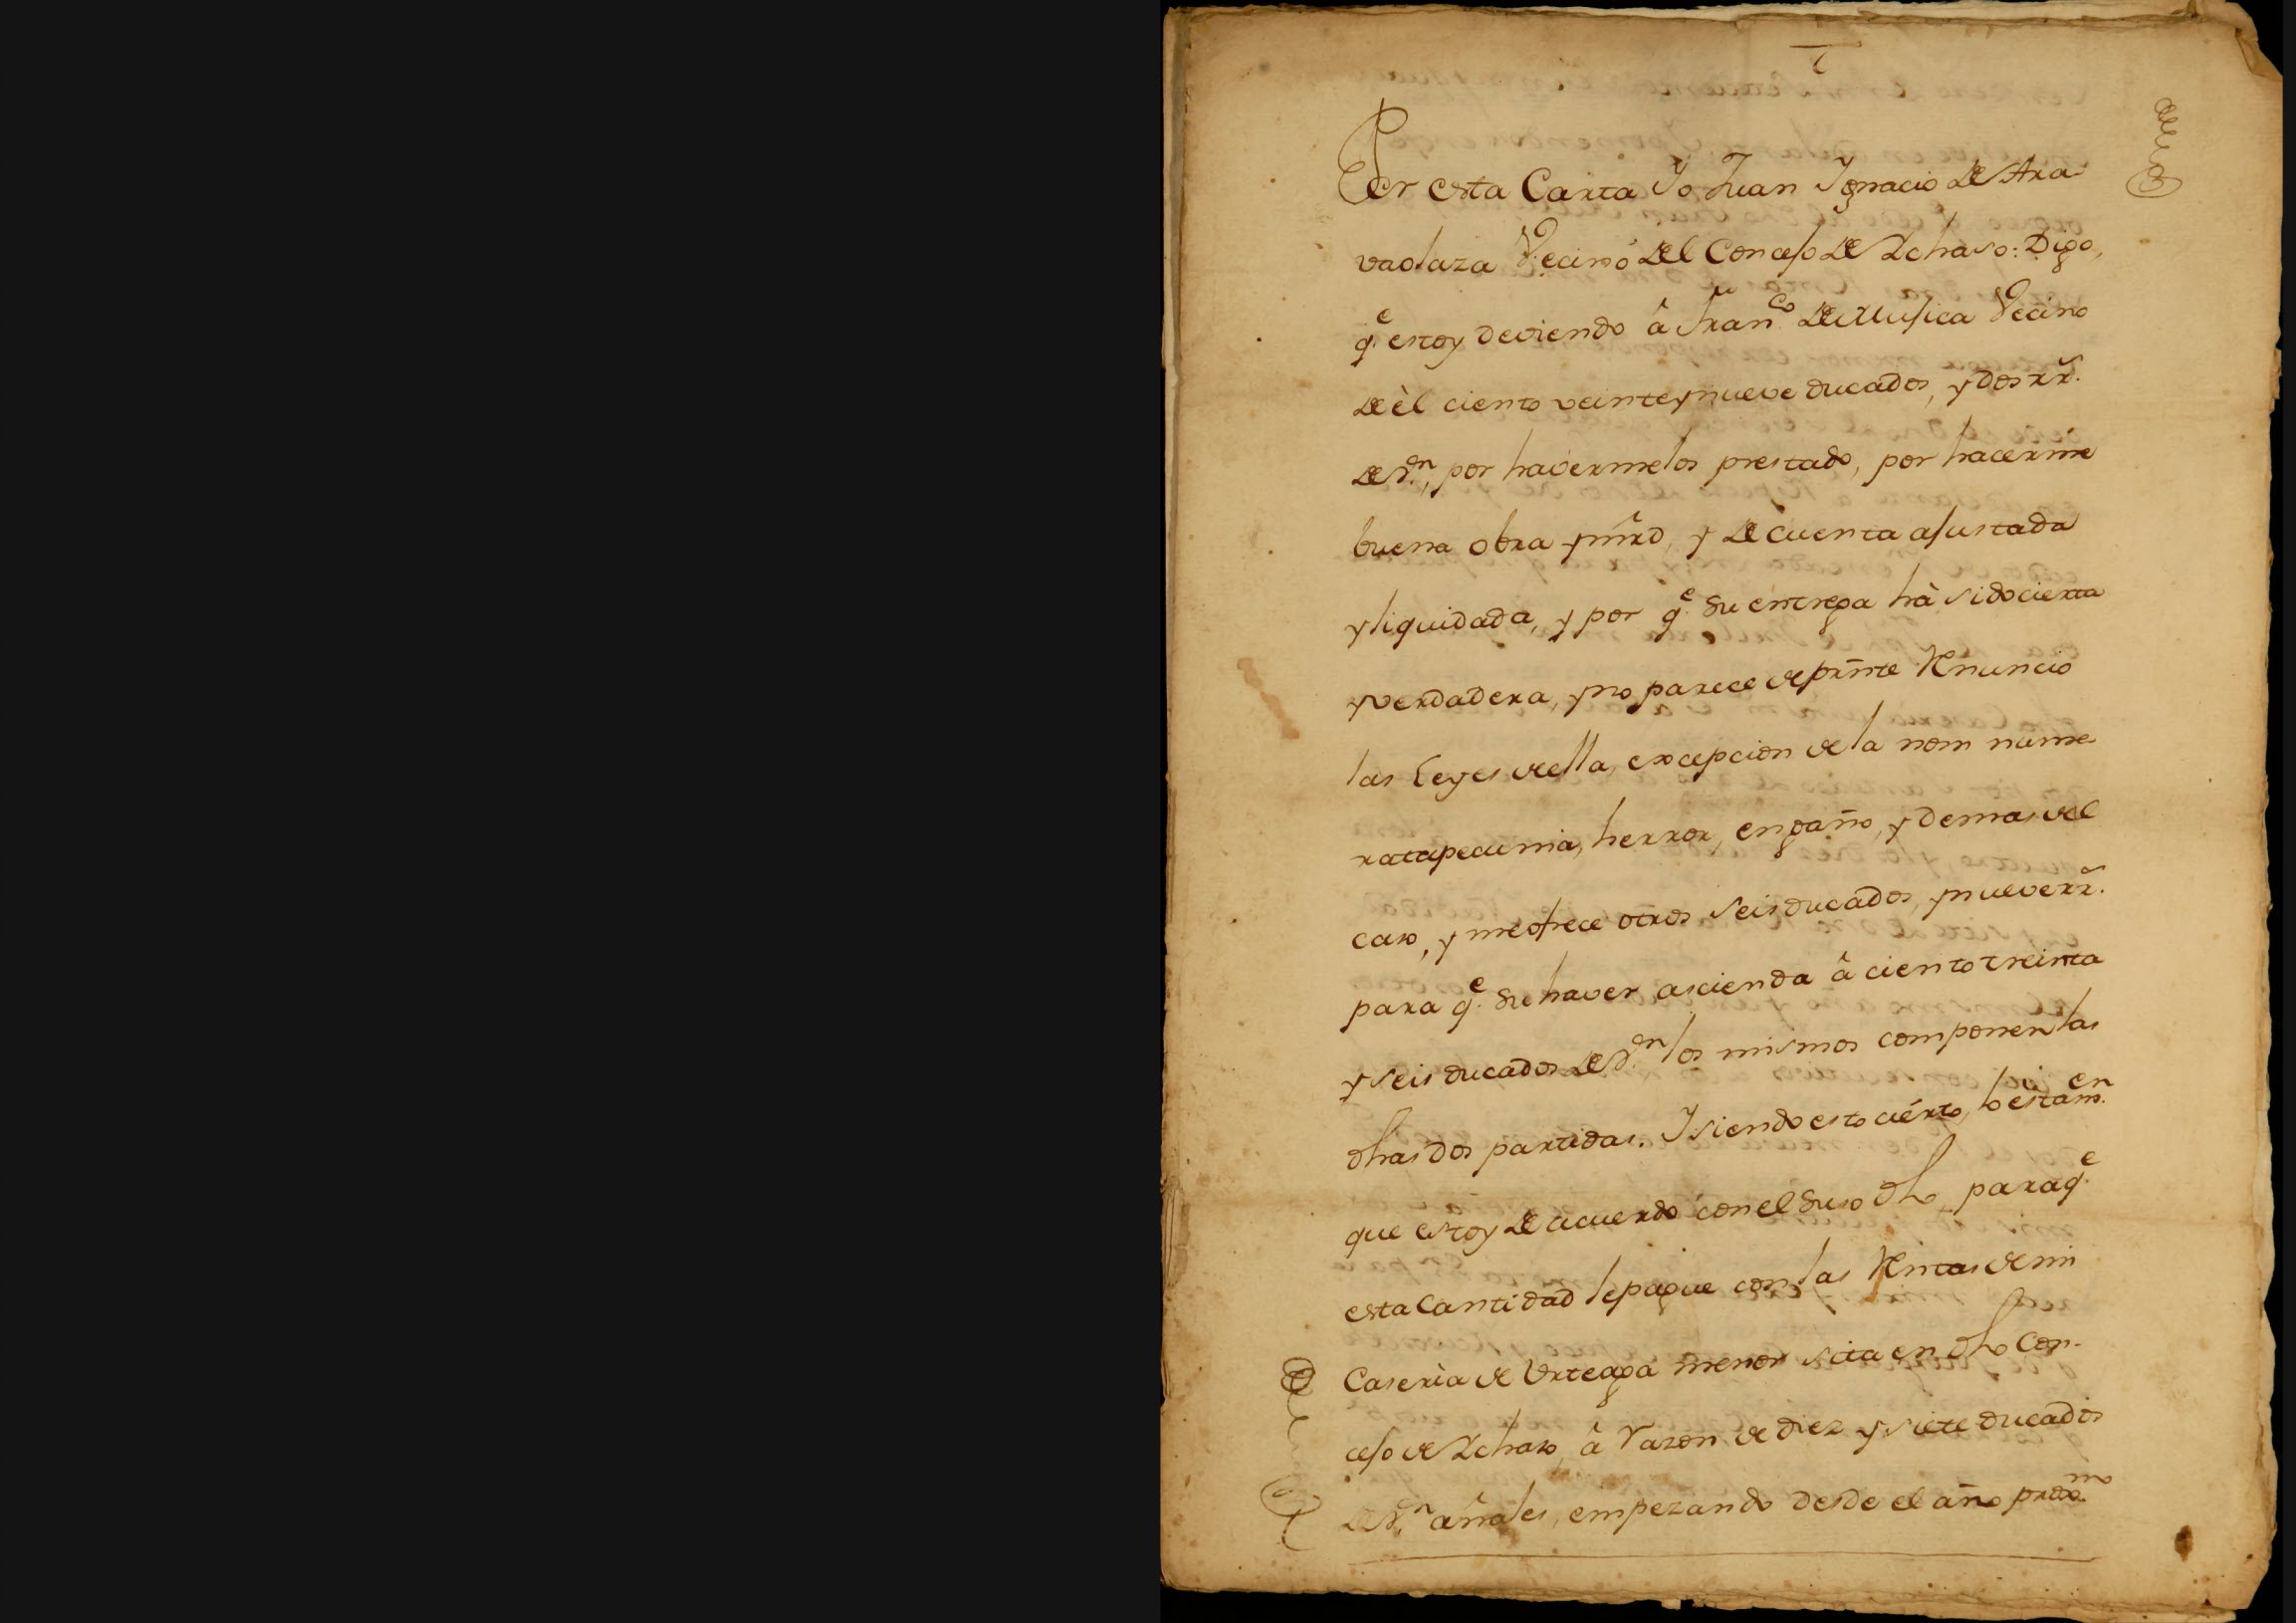 Por esta Carta Yo Juan Ygnacio de Ara
vaolaza Vecino del Concejo de Ychaso: Digo,
q.e estoy deviendo â Fran.co de Mujica Vecino
de èl ciento veinte y nueve ducados, y dos rr.
de v.on, por havermelos prestado, por hacerme
buena obra y mrd, y de cuenta ajustada
y liquidada, y por q.e su entrega hà sido cierta
y verdadera, y no parece de prnte Renuncio
las Leyes de ella, excepcion de la nom nume
rata pecunia, herror, engaño, y demas del
caso, y me ofrece otros seis ducados, y nueve rr.
para q.e su haver ascienda â ciento treinta
y seis ducados de v.on los mismos componen las
dhas dos partidas. Y siendo esto cierto, lo es tam.en
que estoy de acuerdo con el suso dho para q.e
esta Cantidad le pague con las Rentas de mi
Caseria de Urteaga menor scita en dho Con-
cejo de Ychaso, â razon de diez y siete ducados
de v.on añales, empezando desde el año prox.mo